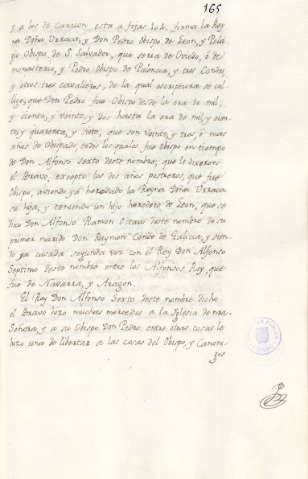 165
y a los de Carrion, esta a fojas 102. firma la Rey
na Doña Urraca, y Don Pedro Obispo de Leon, y Pela
gio Obispo, de S. Salvador, que seria de Oviedo, ó de
monasterio, y Pedro Obispo de Palencia, y tres Condes,
y otros tres cavalleros, de la qual escriptura se co
lige, que Don Pedro fue Obispo desde la era de mil,
y ciento, y veinte, y dos hasta la era de mil, y cien
to, y quarenta, y siete, que son veinte, y tres, ó mas
años de Obispado, todos los quales fue obispo en tiempo
de Don Alfonso sexto deste nombre, que le dixeron
el Bravo, excepto los dos años postreros, que fue
Obispo, aviendo ya heredado la Reyna Doña Urraca
su hija, y teniendo un hijo heredero de Leon, que se
dixo Don Alfonso Ramon Octavo deste nombre de su
primer marido Don Reymon Conde de Galicia, y sien
do ya casada segunda vez con el Rey Don Alfonso
Septimo deste nombre entre los Alfonsos Rey, que
fue de Navarra, y Aragon.
El Rey Don Alfonso Sexto deste nombre dicho
el Bravo hizo muchas mercedes a la Iglesia de nra.
Señora, y a su Obispo Don Pedro, entre otras cosas le
hizo una de libertar a las casas del Obispo, y Canoni
gos